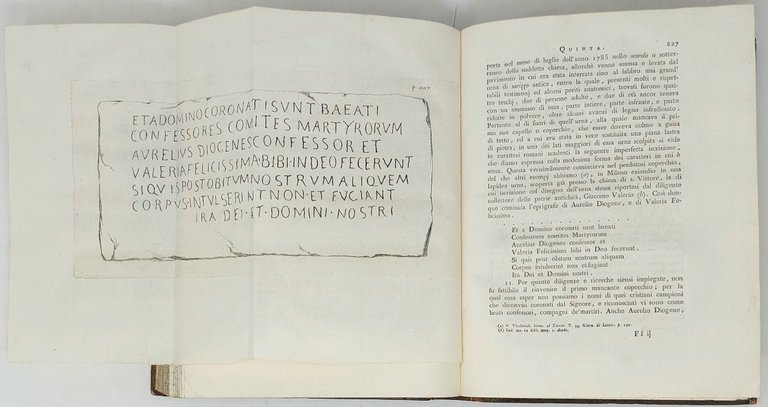 p. 227
ET A DOMINO CORONATI SUNT BAEATI
CONFESSORES COMITES MARTYRORUM
AURELIUS DIOGENES CONFESSOR ET
VALERIA FELICISSIMA·BIBI·IN DEO FECERUNT
SI QUIS POST OBITUM NOSTRUM ALIQUEM
CORPUS·INTULSERINT NON·ET FUGIANT
IRA DEI·ET·DOMINI·NOSTRI
QUINTA. 227
perta nel mese di luglio dell'anno 1785 nello scurolo o sotter-
raneo della suddetta chiesa, allorchè venne smossa e levata dal
pavimento in cui era stata interrata sino al labbro una grand'
urna di sarizzo antica, entro la quale, presenti molti e rispet-
tabili testimonj ed alcuni periti anatomici, trovati furono quat-
tro teschj, due di persone adulte, e due di età ancor tenera
con un ammasso di ossa, parte intiere, parte infrante, e parte
ridotte in polvere, oltre alcuni avanzi di legno infradiciato.
Pertanto al di fuori di quell'urna, alla quale mancava il pri-
mo suo capello o coperchio, che esser doveva colmo a guisa
di tetto, ed a cui era stata in vece sostituita una piana lastra
di pietra, in uno dei lati maggiori di essa urna scolpita si vide
in caratteri romani scadenti la seguente imperfetta iscrizione,
che diamo espressa colla medesima forma dei caratteri in cui è
stesa. Questa verisimilmente cominciava nel perdutosi coperchio,
del che altri esempj abbiamo (a), in Milano eziandio in una
lapidea urna, scoperta già presso la chiesa di s. Vittore, la di
cui iscrizione col disegno dell'urna stessa riportasi dal diligente
collettore delle patrie antichità, Giacomo Valerio (b). Così dun-
que comincia l'epigrafe di Aurelio Diogene, e di Valeria Fe-
licissima.
Et a Domino coronati sunt baeati
Confessores comites Martyrorum
Aurelius Diogenes confessor et
Valeria Felicissima bibi in Deo fecerunt.
Si quis post obitum nostrum aliquem
Corpus intulserint non et fugiant
Ira Dei et Domini nostri.
11. Per quante diligenze e ricerche siensi impiegate, non
fu fattibile il rinvenire il primo mancante coperchio; per la
qual cosa saper non possiamo i nomi di quei cristiani campioni
che diconvisi coronati dal Signore, e riconosciuti vi sono come
beati confessori, compagni de'martiri. Anche Aurelio Diogene,
(a) V. T. 39. Giorn. di p. 197.
(b) Cod. ms. in bibl.
Ff ij